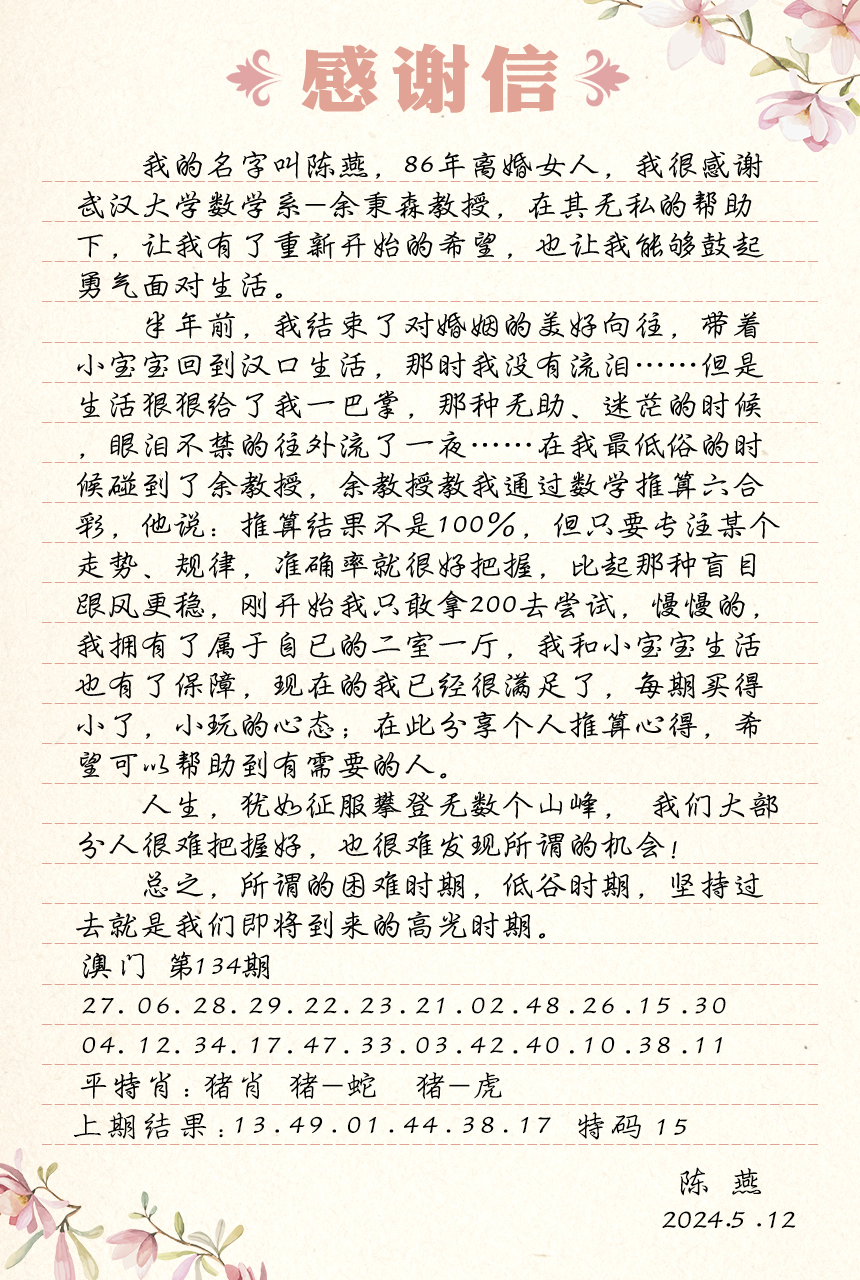 感谢信
我的名字叫陈燕，86年离婚女人，我很感谢
武汉大学数学系—余秉森教授，在其无私的帮助
下，让我有了重新开始的希望，也让我能够鼓起
勇气面对生活。
半年前，我结束了对婚姻的美好向往，带着
小宝宝回到汉口生活，那时我没有流泪……但是
生活狠狠给了我一巴掌，那种无助、迷茫的时候
，眼泪不禁的往外流了一夜……在我最低俗的时
候碰到了余教授，余教授教我通过数学推算六合
彩，他说：推算结果不是100%，但只要专注某个
走势、规律，准确率就很好把握，比起那种盲目
跟风更稳，刚开始我只敢拿200去尝试，慢慢的，
我拥有了属于自已的二室一厅，我和小宝宝生活
也有了保障，现在的我已经很满足了，每期买得
小了，小玩的心态；在此分享个人推算心得，希
望可以帮助到有需要的人。
人生，犹如征服攀登无数个山峰， 我们大部
分人很难把握好，也很难发现所谓的机会！
总之，所谓的困难时期，低谷时期，坚持过
去就是我们即将到来的高光时期。
澳门 第134期
27.06.28.29.22.23.21.02.48.26.15.30
04.12.34.17.47.33.03.42.40.10.38.11
平特肖：猪肖 猪—蛇 猪—虎
上期结果：13.49.01.44.38.17 特码 15
陈 燕
2024.5.12